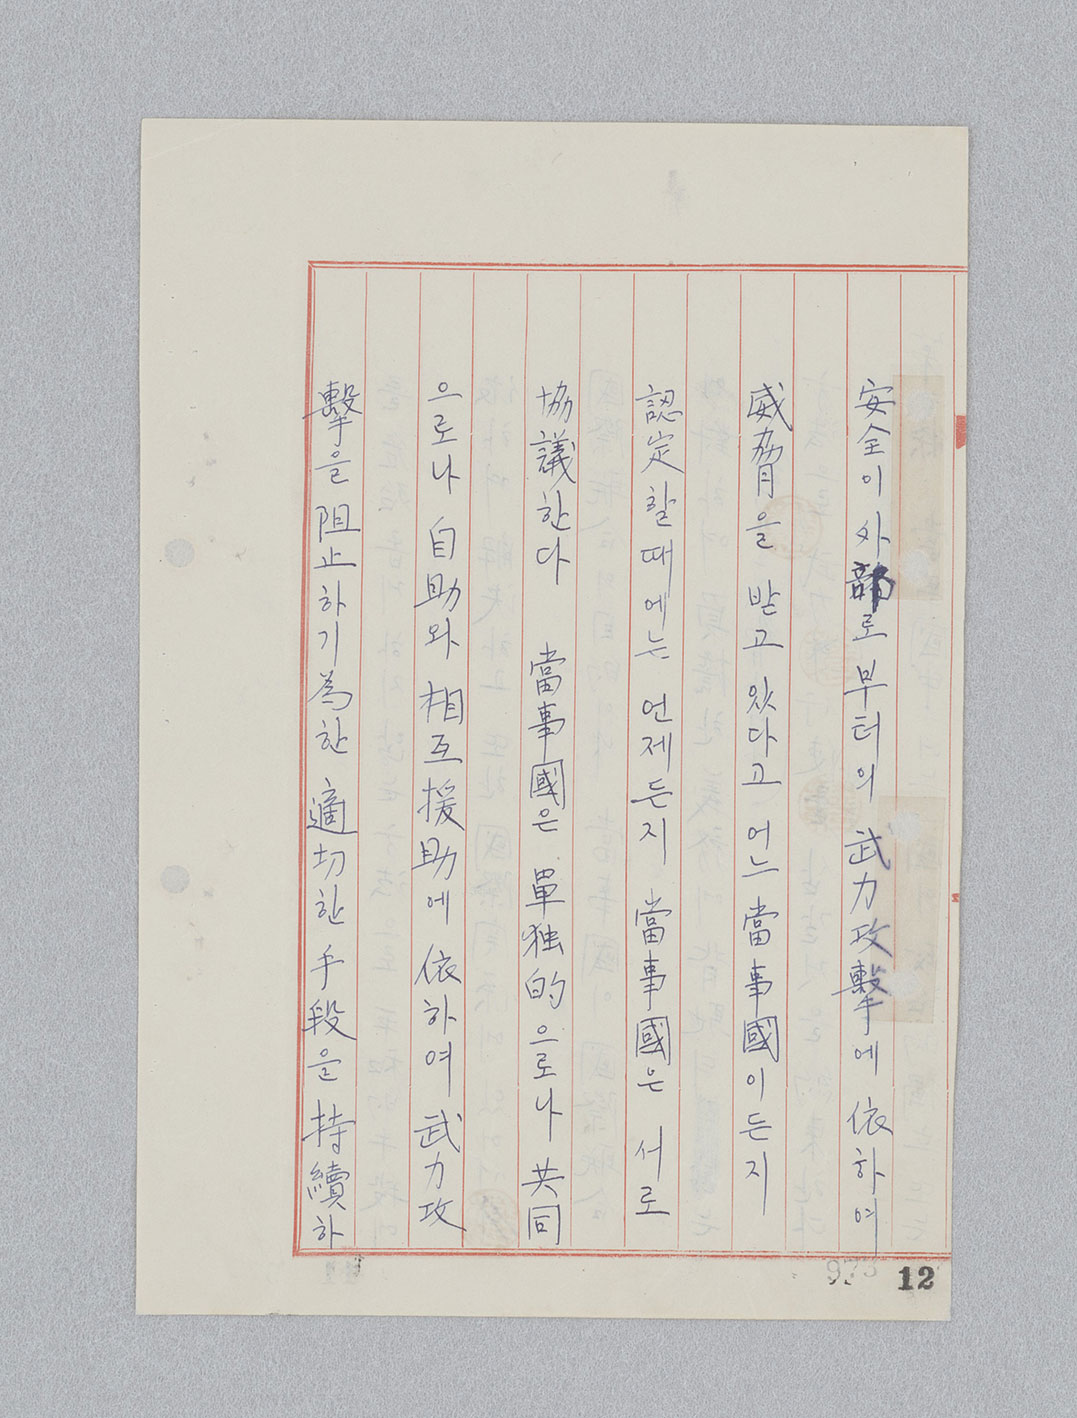 安全이 外部로 부터의 武力攻擊에 依하여
威脅을 받고 있다고 어느 當事國이든지
認定할때에는 언제든지 當事國은 서로
協議한다 當事國은 單独的으로나 共同
으로나 自助와 相互援助에 依하여 武力攻
擊을 阻止하기 爲한 適切한 手段을 持續하
12